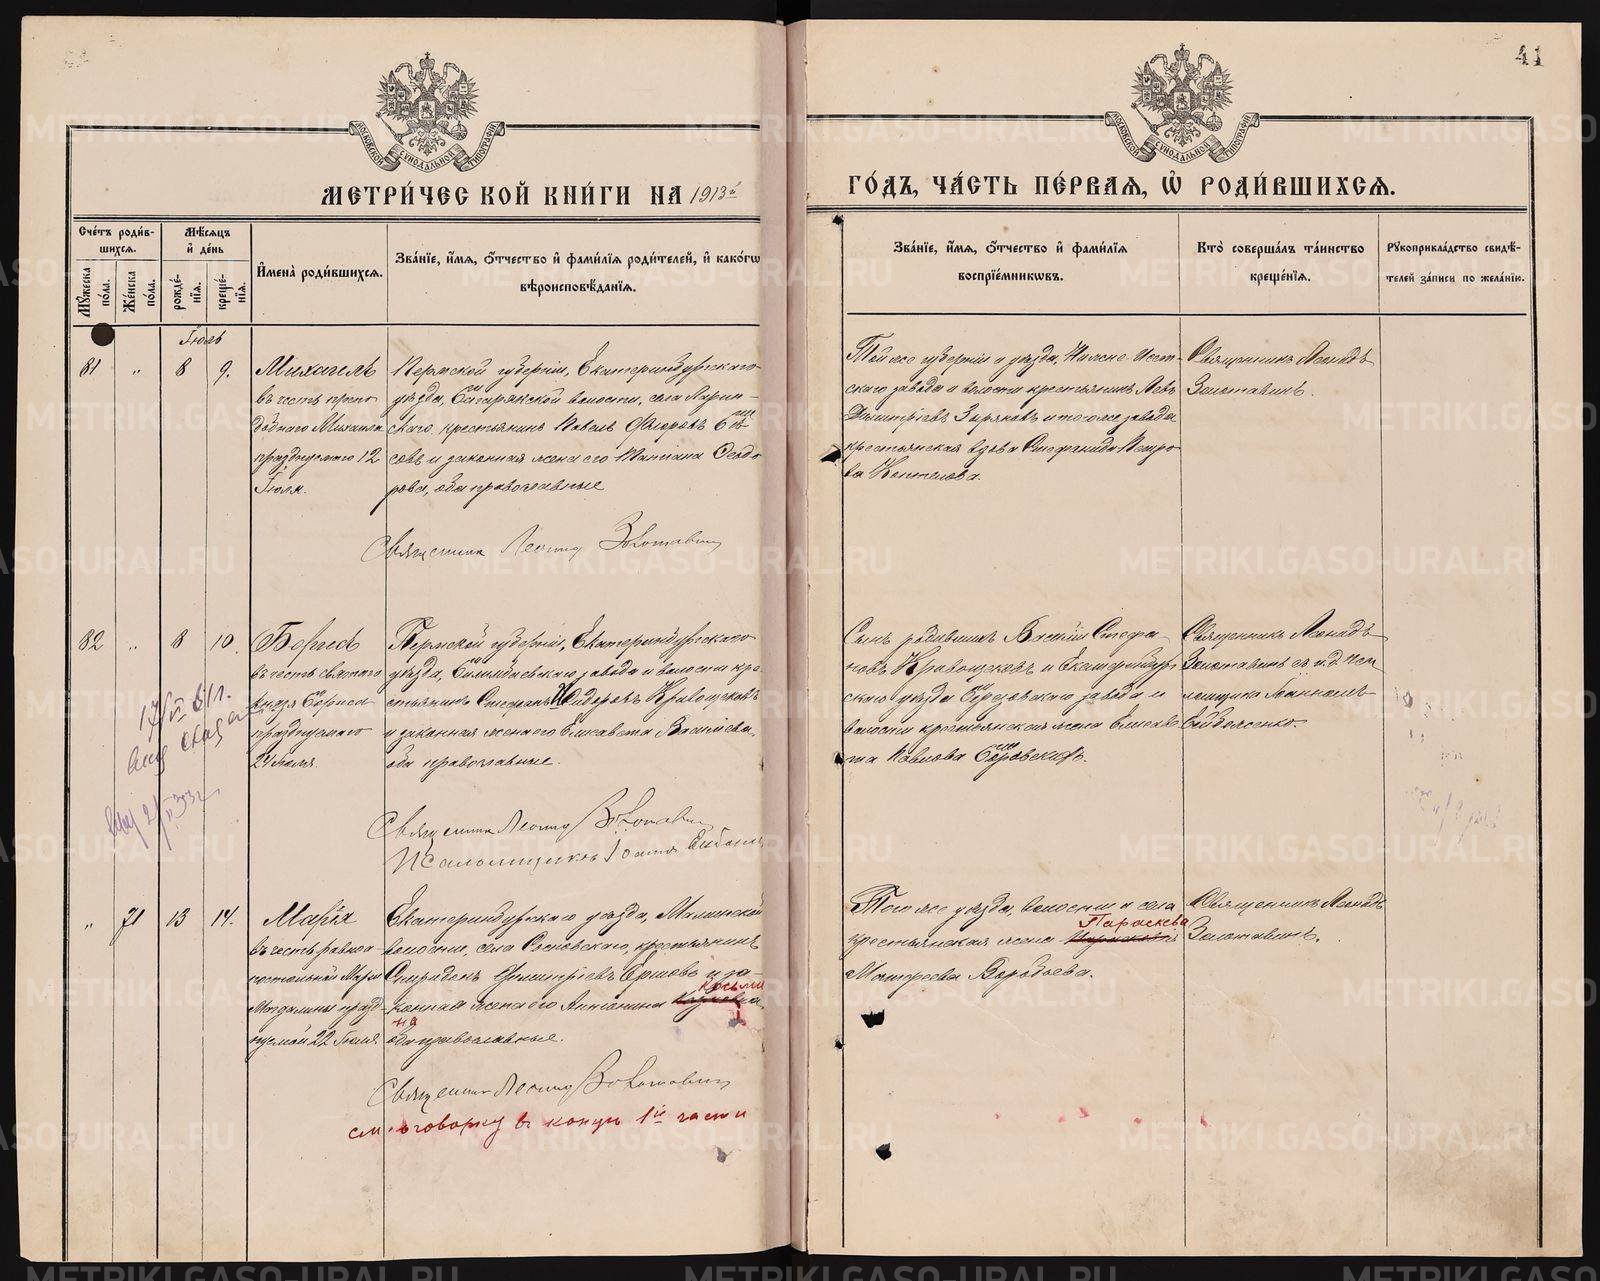 41
МОСКОВСКОЙ СѴНОДАЛЬНОЙ ТИПОГРАФІИ
МОСКОВСКОЙ СѴНОДАЛЬНОЙ ТИПОГРАФІИ
МЕТРИ́ЧЕСКОЙ КНИ́ГИ НА 1913й
ГО́ДЪ, ЧА́СТЬ ПЕ́РВАЯ, Ѡ҆ РОДИ́ВШИХСЯ.
Сче́тъ роди́в-
шихся.
Му́жеска по́ла.
Же́нска по́ла.
Мѣ́сяцъ
и҆ де́нь
рожде́-
нїя.
креще́-
нїя.
И҆мена̀ роди́вшихся.
Зва́нїе, и҆́мя, ѻ҆́тчество и҆ фами́лїя роди́телей, и҆ како́гѡ
вѣроисповѣ́данїя.
Зва́нїе, и҆́мя, ѻ҆́тчество и҆ фами́лїя
воспрїе́мникѡвъ.
Кто̀ соверша́лъ та́инство
креще́нїя.
Рꙋкоприкла́дство свидѣ́-
телей за́писи по жела́нїю.
Іюль
81 „ 8 9.
Михаилъ
въ честь препо
добнаго Михаила
празднуемаго 12
Іюля.
Пермской губерніи, Екатеринбургскаго
уѣзда, волости, села
скаго крестьянинъ Павелъ
совъ и законная жена его Татіана Ѳедо
рова, оба православные
Священник Леонид Золотавин
Той же губерніи и уѣзда, Нижне-Исет-
скаго завода и волости крестьянинъ Левъ
Димитріевъ Зыряновъ и того же завода
крестьянская вдова Стефанида Петро
ва
Священникъ Леонидъ
Золотавинъ.
82 „ 8 10.
Борисъ
въ честь святаго
князя Бориса
празднуемаго
24 Іюля.
Пермской губерніи, Екатеринбургскаго
уѣзда, завода и волости кре
стьянинъ Стефанъ Исидоровъ Кривощековъ
и законная жена его Елисавета Васильева,
оба православные.
Священник Леонид Золотавин
Псаломщикъ Іоаннъ
Сынъ родившихъ Василій Стефа
новъ Кривощековъ и Екатеринбург
скаго уѣзда Березовскаго завода и
волости крестьянская жена Елисаве
та Павлова
Священникъ Леонидъ
Золотавинъ съ и. д. пса
ломщика Іоанномъ
„ 71 13 14.
Марія
въ честь равноа
постольной Маріи
Магдалины празд-
нуемой 22 Іюля.
Екатеринбургскаго уѣзда, Маминской
волости, села Сосновскаго, крестьянинъ
Спиридонъ Димитріевъ Ершовъ и за-
конная жена его Антонина
Косьми
на
оба православные.
Священник Леонид Золотавин
см. оговорку въ концѣ 1й части
Того же уѣзда, волости и села
крестьянская жена
Параскева
Матѳеева Воробьева.
Священникъ Леонидъ
Золотавинъ.
METRIKI.GASO-URAL.RU